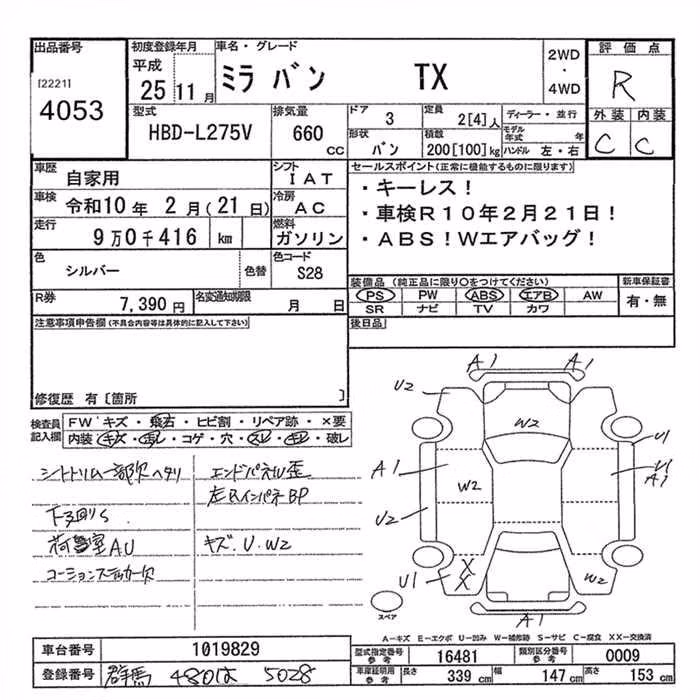 出品番号
[2221]
4053
初度登録年月
平成
25 11月
車名・グレード
ミラ バン TX
2WD
・
4WD
評価点
R
外装 内装
C C
型式
HBD-L275V
排気量
660 CC
ドア 3
形状 バン
定員 2[4]人
積載 200[100]kg
ディーラー・並行
モデル年式 年
ハンドル 左・右
車歴 自家用
車検 令和10年 2月(21日)
走行 9万0千416 km
色 シルバー 色替
シフト IAT
冷房 AC
燃料 ガソリン
色コード S28
R券 7,390円
名変通知期限 月 日
セールスポイント(正常に機能するものに限ります)
・キーレス！
・車検R10年2月21日！
・ABS！Wエアバッグ！
装備品 (純正品に限り○をつけてください)
PS PW ABS エアB AW
SR ナビ TV カワ
新車保証書
有・無
後日品
注意事項申告欄(不具合内容等は具体的に記入して下さい)
修復歴 有〔箇所 〕
検査員記入欄
FW キズ・飛石・ヒビ割・リペア跡・×要
内装 キズ・汚レ・コゲ・穴・スレ・キレ・破レ
シートトリム一部欠ヘタリ
下廻りS
荷室AU
コーションステッカー欠
エンドパネル歪
左RインパネBP
キズ.U.W2
A1 A1
U2
W2
U1
A1
W2
U1
A1
U2
U1
X
X
W2
A1
スペア
A－キズ E－エクボ U－凹み W－補修跡 S－サビ C－腐食 XX－交換済
車台番号 1019829
登録番号 群馬 480は 5028
型式指定番号 参考 16481
類別区分番号 参考 0009
車庫証明用 参考 長さ 339cm 幅 147cm 高さ 153cm